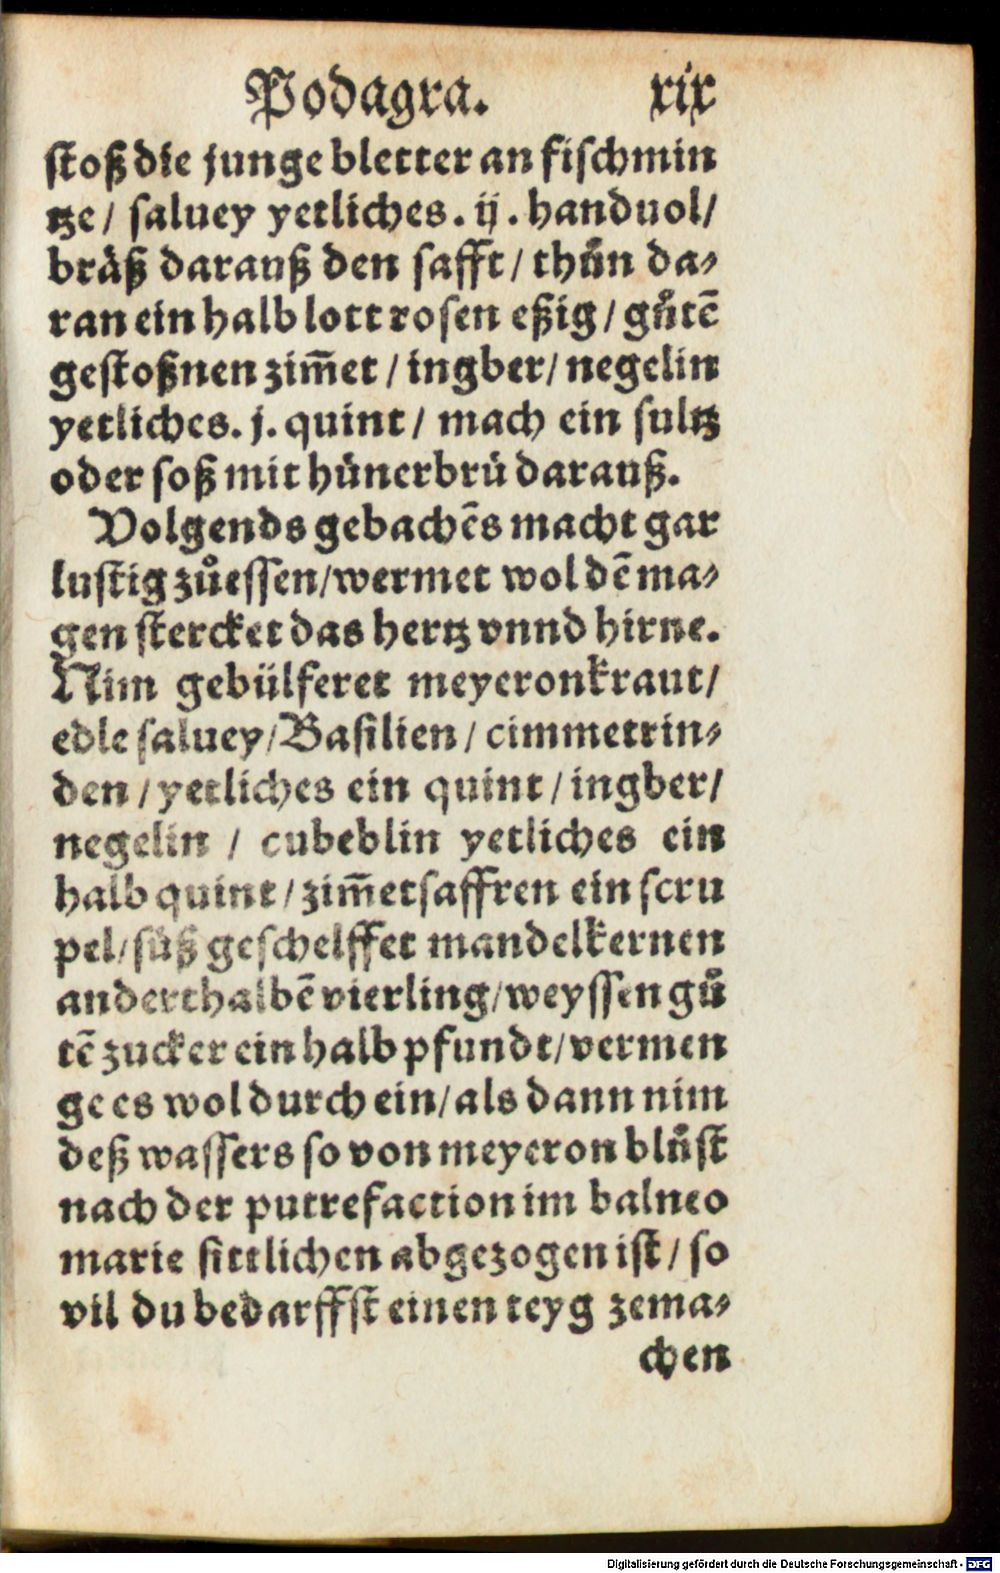 Podagra. xix
stoß die junge bletter an fischmin
tze / saluey yetliches. ij. handuol /
bräß darauß den safft / thůn da⸗
ran ein halb lott rosen eßig / gůtē
gestoßnen zim̄et / ingber / negelin
yetliches. j. quint / mach ein sultz
oder soß mit hünerbrü darauß.
Volgends gebachēs macht gar
lustig zůessen / wermet wol dē ma⸗
gen stercket das hertz vnnd hirne.
Nim gebülferet meyeronkraut /
edle saluey / Basilien / cimmetrin⸗
den / yetliches ein quint / ingber /
negelin / cubeblin yetliches ein
halb quint / zim̄etsaffren ein scru
pel / süß geschelffet mandelkernen
anderthalbē vierling / weyssen gů
tē zucker ein halb pfundt / vermen
ge es wol durch ein / als dann nim
deß wassers so von meyeron blůst
nach der putrefaction im balneo
marie sittlichen abgezogen ist / so
vil du bedarffst einen teyg zema⸗
chen
Digitalisierung gefördert durch die Deutsche Forschungsgemeinschaft - DFG